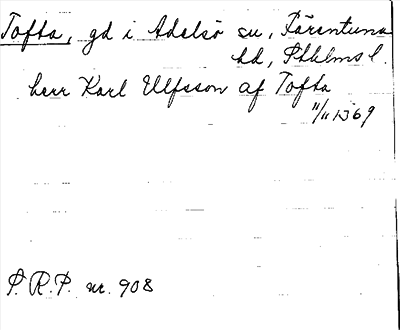 Tofta, gd i Adelsö sn, Färentuna
hd, Sthlms l.
herr Karl Ulfsson af Tofta
11/11 1369
P.R.P. nr. 908